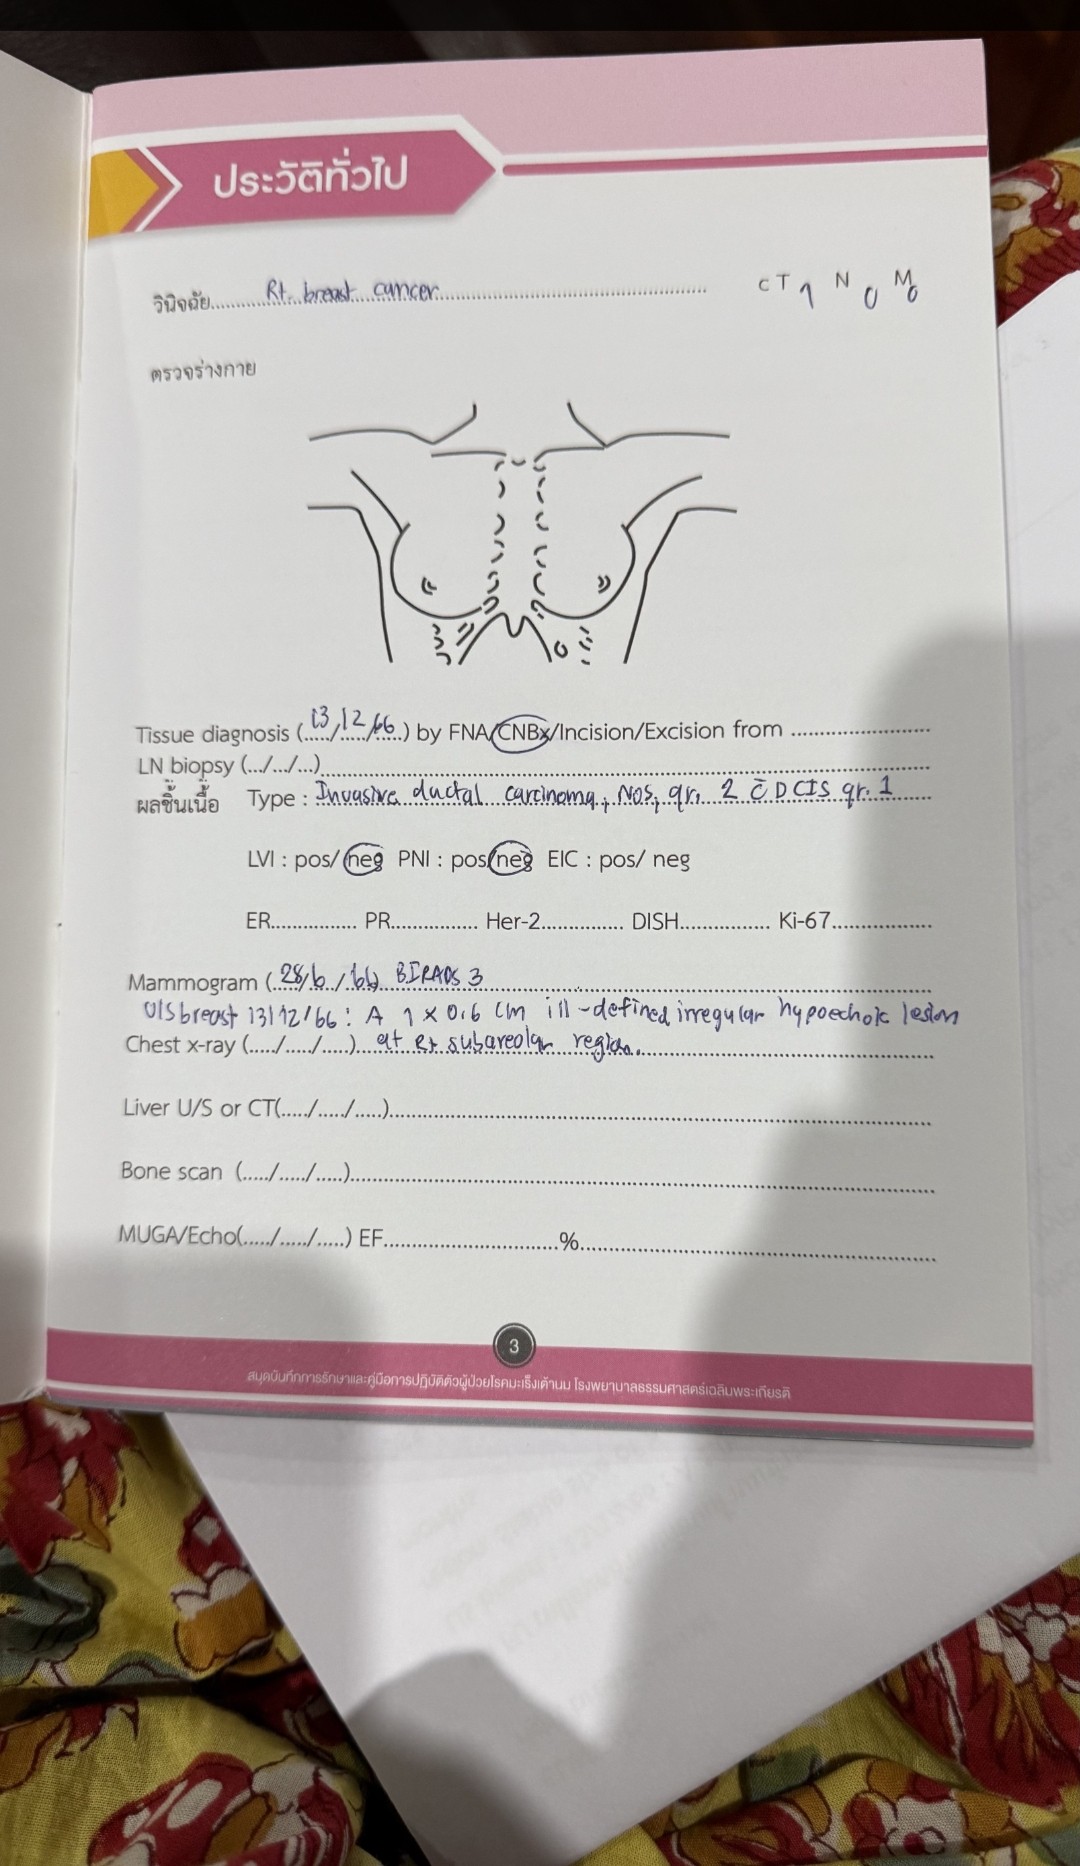 ประวัติทั่วไป
วินิจฉัย Rt. breast cancer cT1 N0 M0
ตรวจร่างกาย
Tissue diagnosis (13/12/66) by FNA/CNBx/Incision/Excision from ....................
LN biopsy (.../.../...)
ผลชิ้นเนื้อ Type : Invasive ductal carcinoma, NOS, gr. 2 c̄ DCIS gr. 1
LVI : pos/ neg PNI : pos/neg EIC : pos/ neg
ER............... PR............... Her-2.............. DISH................ Ki-67.................
Mammogram (28/6/66) BIRADS 3
U/S breast 13/12/66 : A 1 x 0.6 cm ill-defined irregular hypoechoic lesion
Chest x-ray (...../...../.....) at Rt subareolar region.
Liver U/S or CT(...../...../.....)
Bone scan (...../...../.....)
MUGA/Echo(...../...../.....) EF..............................%
3
สมุดบันทึกการรักษาและคู่มือการปฏิบัติตัวผู้ป่วยโรคมะเร็งเต้านม โรงพยาบาลธรรมศาสตร์เฉลิมพระเกียรติ